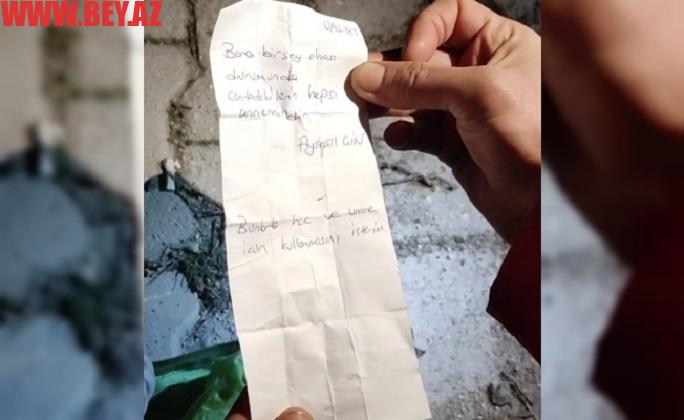 WWW.BEY.AZ
VASİYET
Bana birşey olması
durumunda
hepsi
annemindir
Aysigül GİN
hac ve umre
için kullanmasını isterim